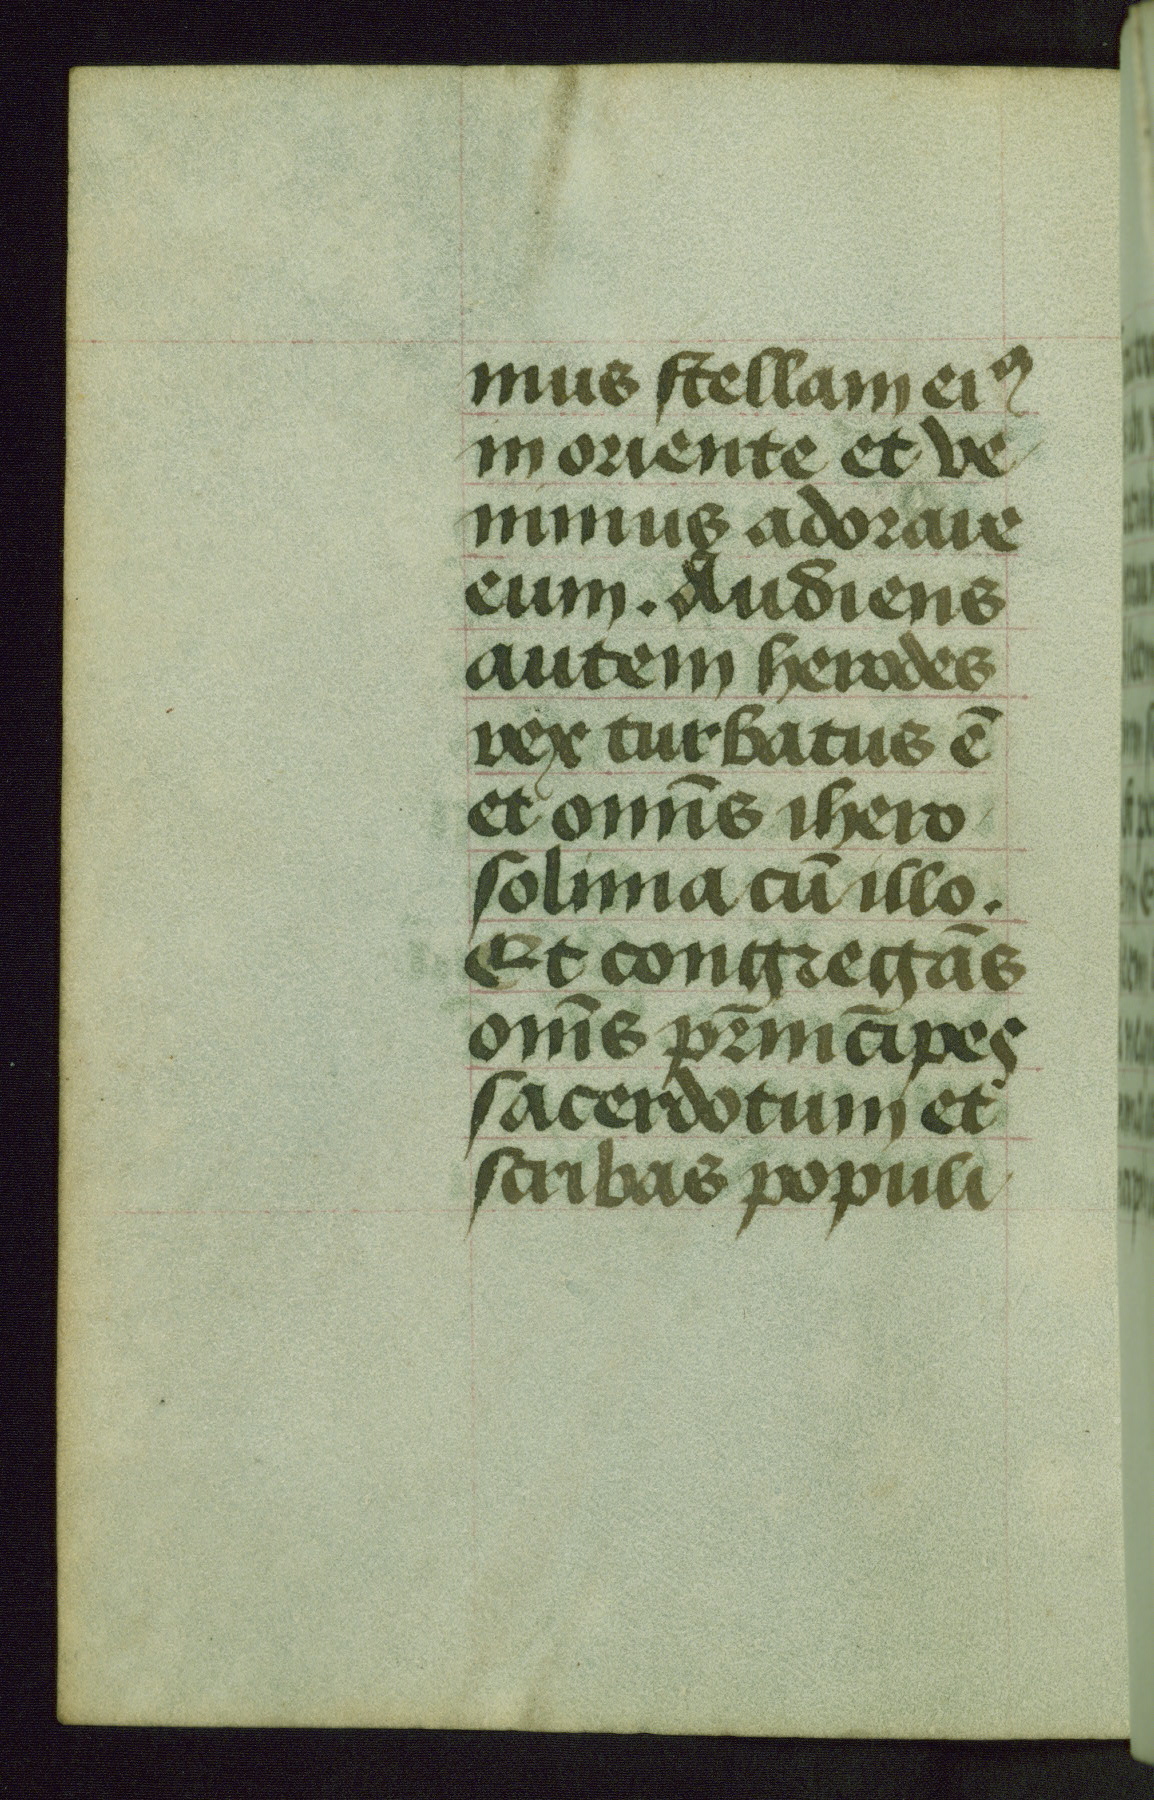 mus stellam eiꝰ
in oriente et ve
nimus adorare
eum. Audiens
autem herodes
rex turbatus ē
et omīs ihero
solima cū illo.
Et congregās
om̄s prīncipes
sacerdotum et
scribas populi